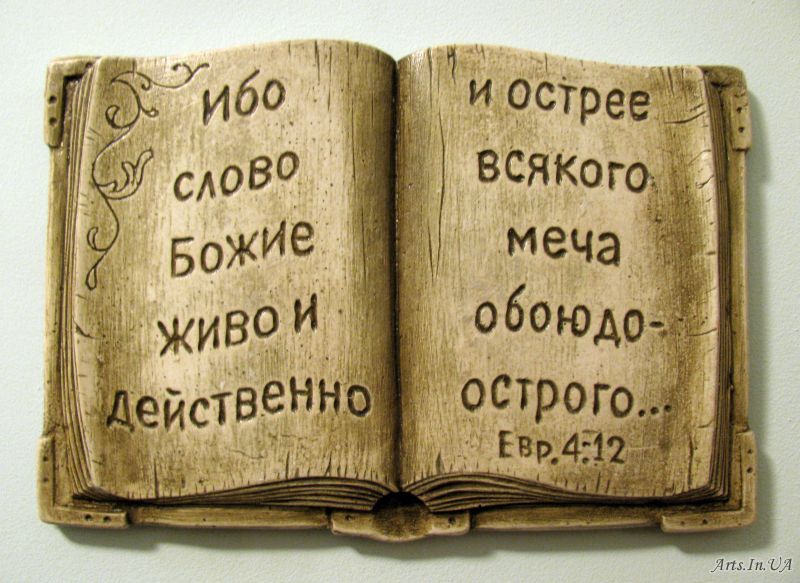 ибо
слово
Божие
живо и
действенно
и острее
всякого
меча
обоюдо-
острого...
Евр. 4:12
Arts.In.UA